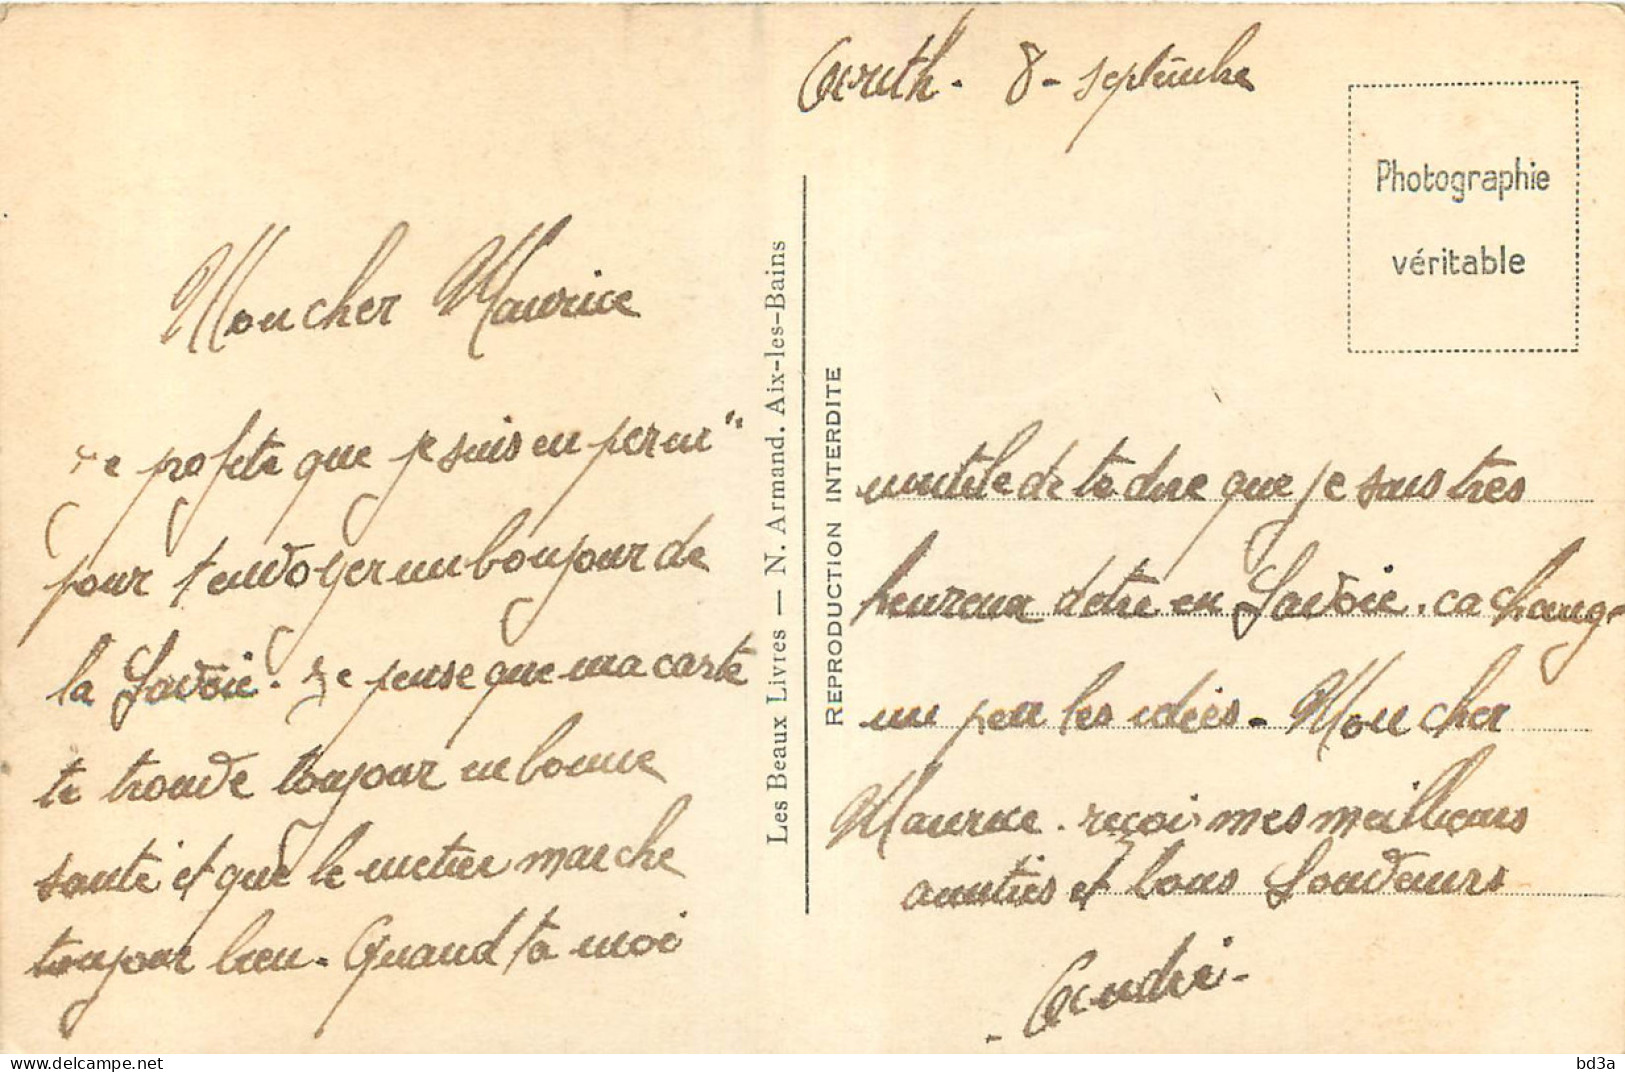 8 - septembre
Moucher Maurice
Je profite que je suis en perm"
pour t envoyer un boujour de
la Savoie. Je pense que ma carte
te trouve toujour en bonne
santé et que le metier marche
toujour bien - Quand ta moi
Les Beaux Livres — N. Armand. Aix-les-Bains
REPRODUCTION INTERDITE
Photographie
véritable
inutile de te dire que je sous tres
heureux detre en Savoie. ca change
un peu les idées - Moucher
Maurice. reçoi mes meilleurs
amities et bons Souveurs
- André -
bd3a